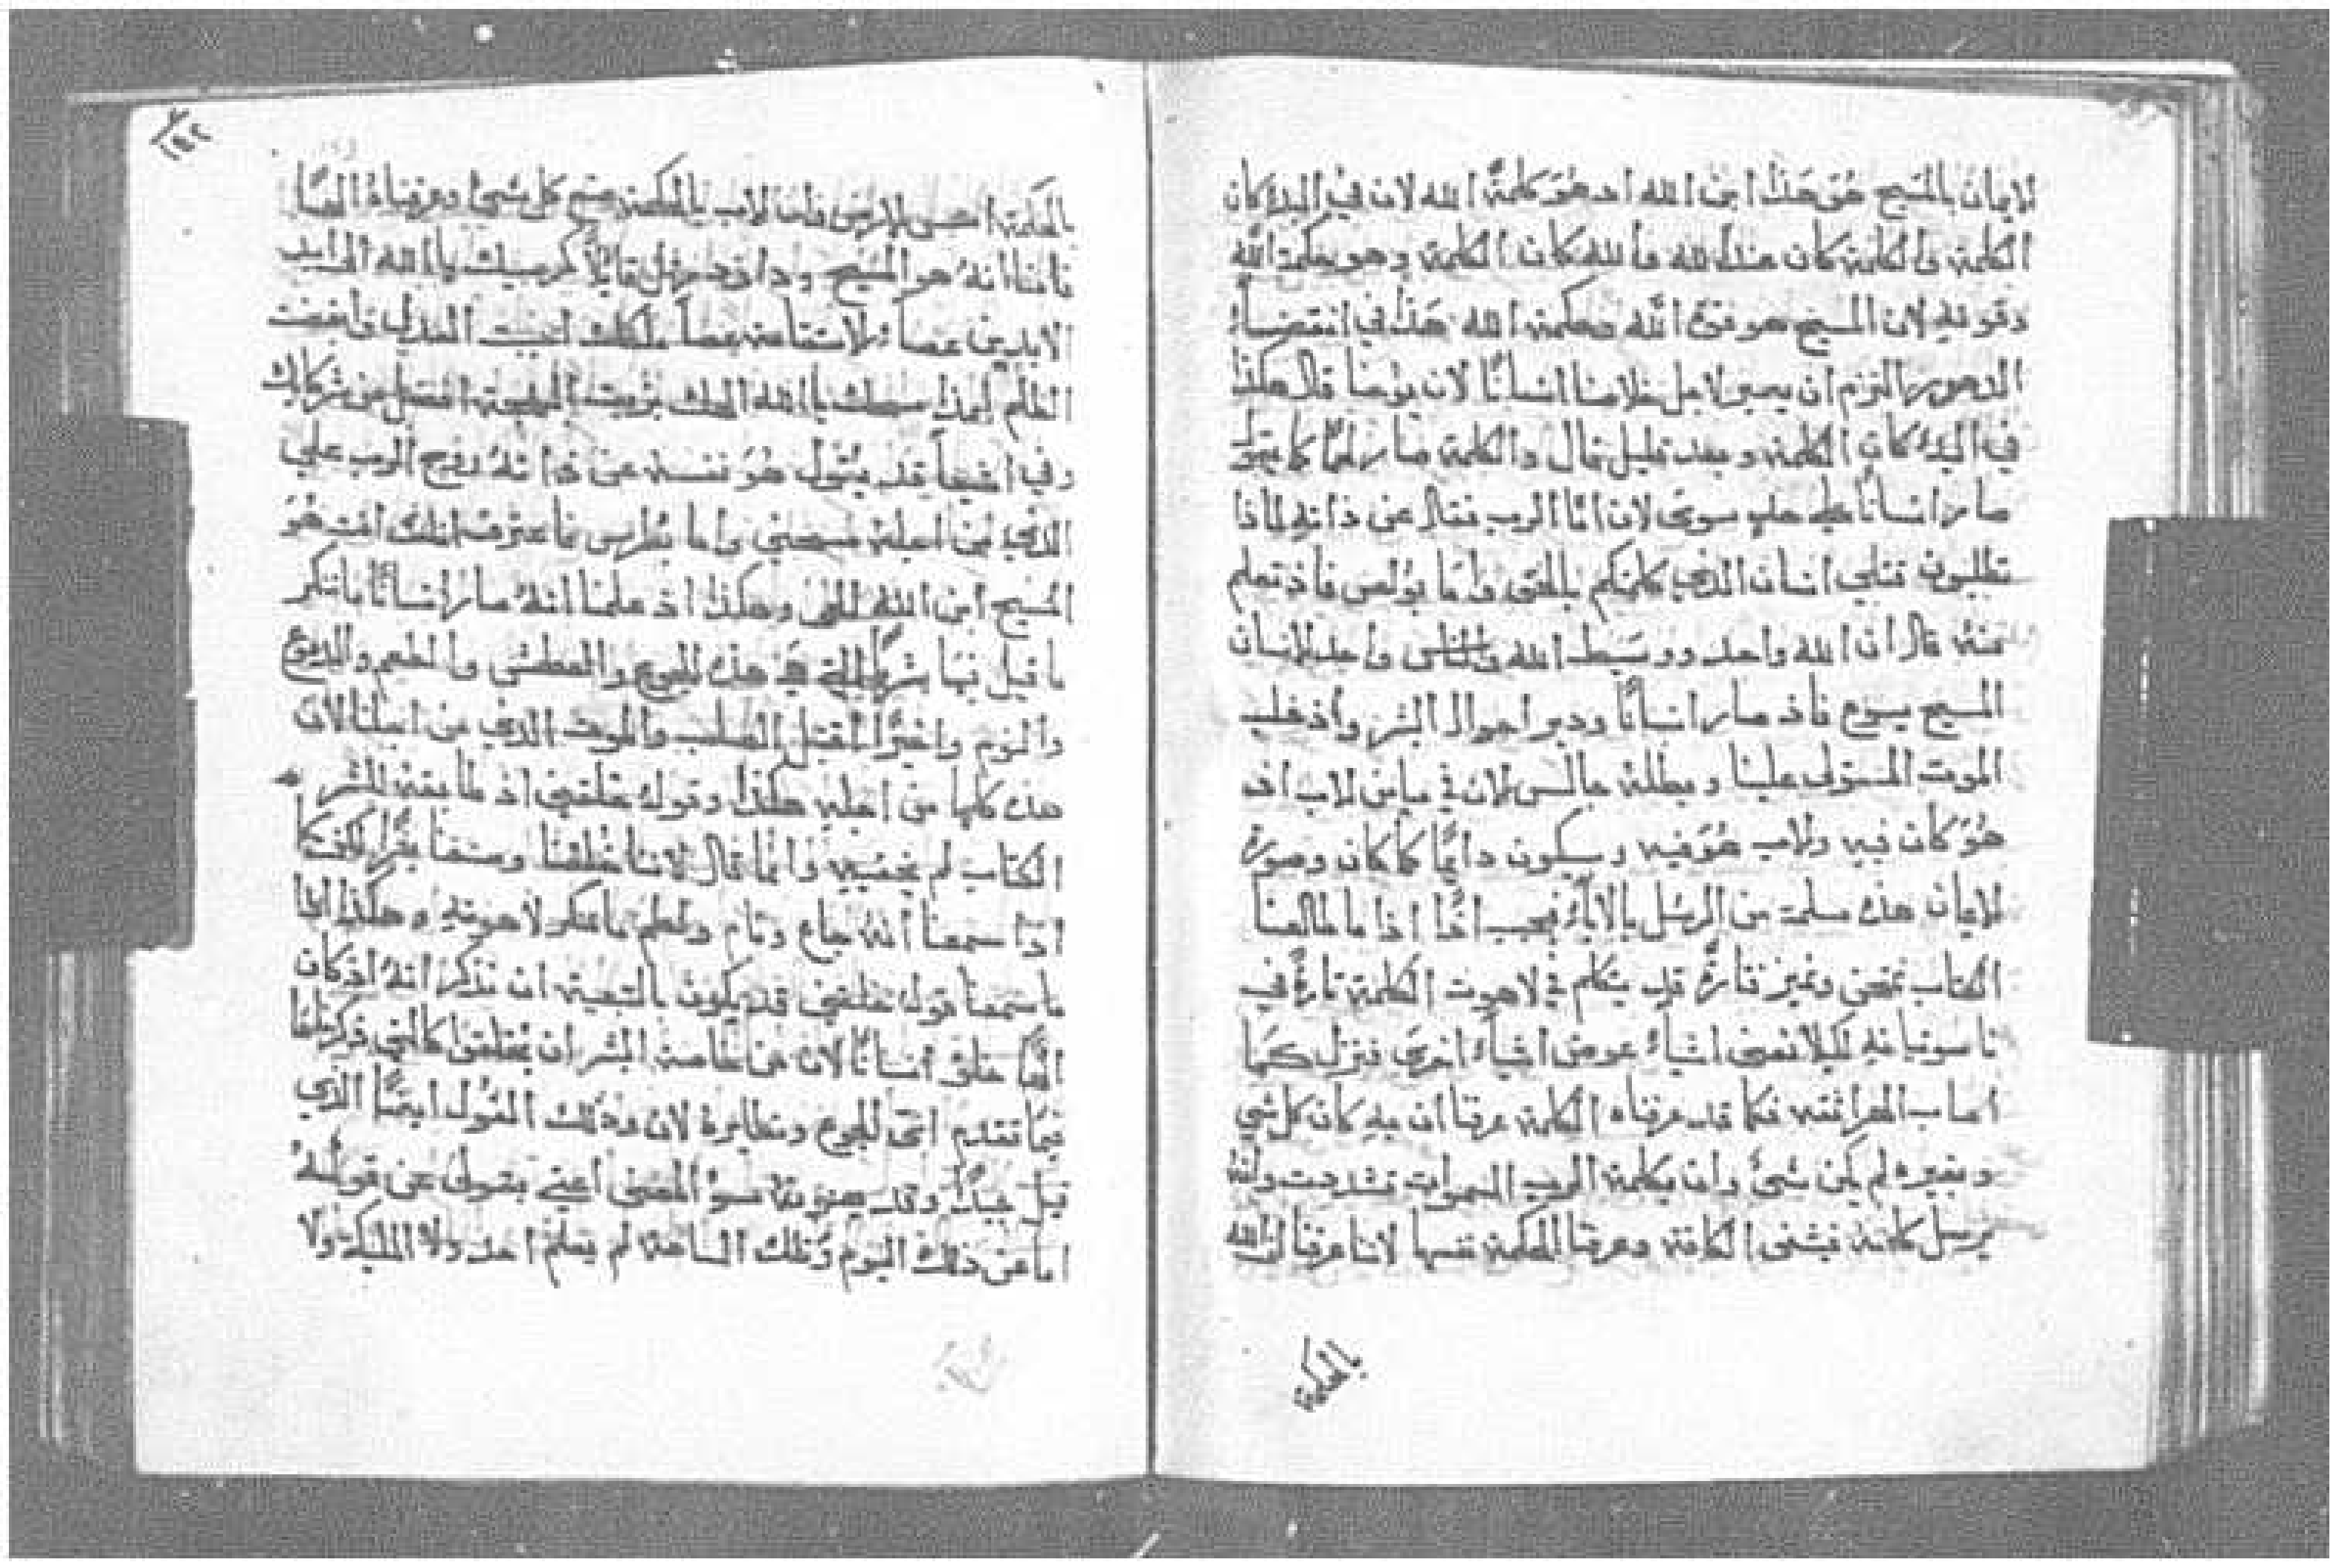 لايمان بالمسيح هو هذا ابن الله اذ هو كلمة الله لان في البدء كان
الكلمة والكلمة كان عند الله والله كان الكلمة وهو حكمة الله
وقوته لان المسيح هو قوة الله وحكمة الله هذا في انقضاء
الدهور التزم ان يصير لاجل خلاصنا انسانًا لان يوحنا قال هكذا
في البدء كان الكلمة وبعد قليل قال والكلمة صار لحمًا كما يقول
صار انسانًا سوى لان اما الرب فقال عن ذاته لماذا
تطلبون قتلي انسان الذي كلمتكم بالحق واما بولص فاذ تعلم
منه قال ان الله واحد ووسيط الله والناس واحد الانسان
المسيح يسوع فاذ صار انسانًا ودبر احوال البشر واذ غلب
الموت المستولى علينا وبطله جالس الان في ميامن الاب اذ
هو كان فيه والاب هو فيه وسيكون دايمًا كما كان وصورة
الايمان هذه سلمت من الرسل بالاباء فيجب اذًا اذا ما طالعنا
الكتاب نفحص ونميز فتارة قد يتكلم في لاهوت الكلمة تارة في
ناسوتيانه لكيلا نفهم اشياء عوض اشياء اخرى فنزل كما
اصاب الهراتقة فكما قد عرفناه الكلمة عرفنا ان به كان كل شي
وبغيره لم يكن شئ وان بكلمة الرب السموات تشددت وانه
يرسل كلمته فيشفى الكافة وعرفنا الحكمة نفسها لاننا عرفنا ان الله
بالحكمة
١٥٢
بالحكمة اسس الارض فان الاب بالحكمة صنع كل شئ وعرفناه الهًا
فامنا انه هو المسيح وداود يرتل قايلاً كرسيك يا الله الى ابد
الابدين عصاء الاستقامة عصا ملكك احببت العدل وابغضت
الظلم لهذا مسحك يا الله الهك بزيت البهجة افضل من شركايك
وفي اشعيا قد يقول هو نفسه عن ذاته روح الرب علي
الذي من اجله مسحني واما بطرس فاعترف انك انت هو
المسيح ابن الله الحي وهكذا اذ علمنا انه صار انسانًا ما ننكر
ما قيل فيها بشريًا التي هي هذه الجوع والعطش واللطم والدموع
والنوم واخيرًا اقتبل الصلب والموت الذي من اجلنا لان
هذه كلها من اجله هكذا وقوله خلقني اذ طابقته للبشر
الكتاب لم يخفيه وانما قال لاننا خلقنا وصنعنا
اذا سمعنا انه جاع ونام ولطم ما ننكر لاهوته وهكذا اذا
ما سمعنا قوله خلقني قد يكون بالتبعية ان نتذكر انه اذ كان
الهًا خلق انسانًا لان من خاصة البشر ان يخلقوا كالتي ذكرناها
فيما تقدم اي الجوع ونظايره لان وذلك القول ايضًا الذي
قيل جيدًا وقد يعتريه سوء المعنى اعني بقولي عن قوله
اما عن ذلك اليوم وتلك الساعة لم يعلم احد ولا المليكة ولا